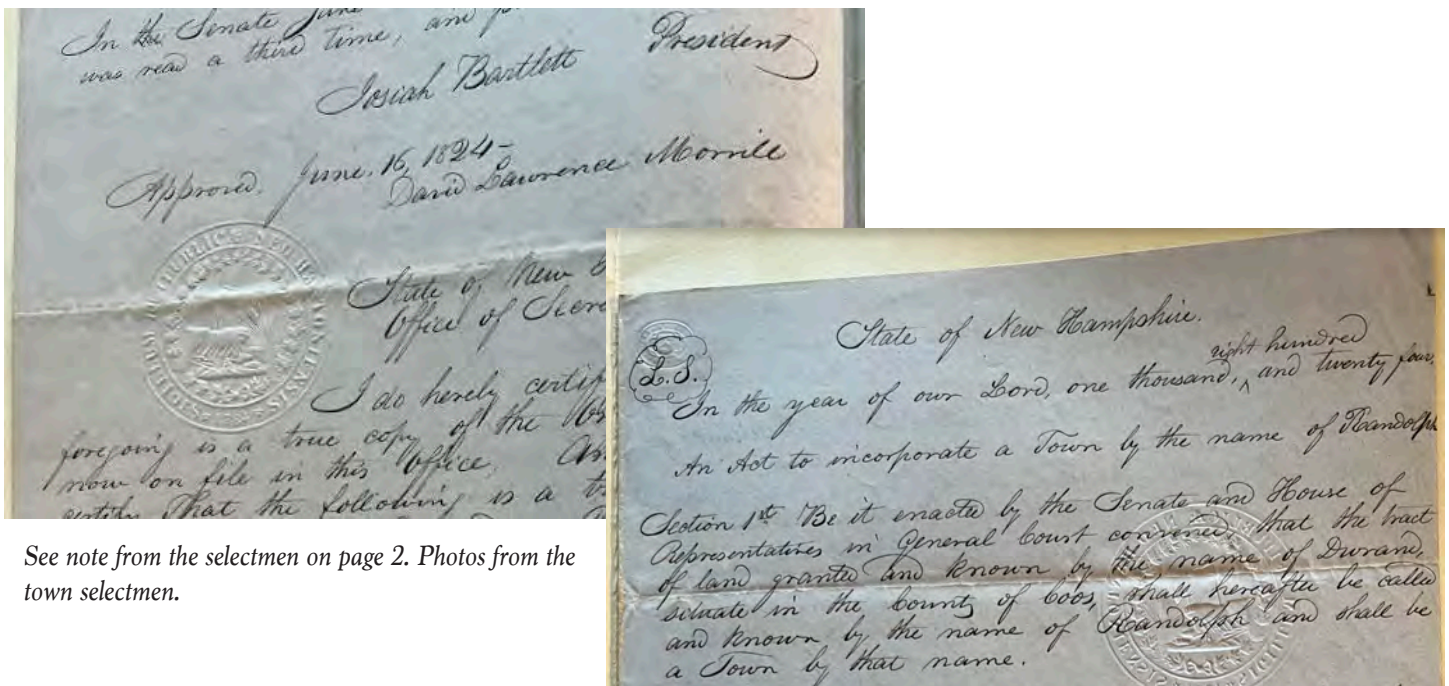 In the Senate June
was read a third time, and p
Josiah Bartlett President
Approved. June. 16, 1824-
David Lawrence Morrill
State of New
Office of Secre
I do hereby certif
foregoing is a true copy of the
now on file in this Office, An
certify That the following is a t
See note from the selectmen on page 2. Photos from the
town selectmen.
State of New Hampshire.
L.S.
eight hundred
In the year of our Lord, one thousand, ^ and twenty four.
An Act to incorporate a Town by the name of Randolph
Section 1st Be it enacted by the Senate and House of
Representatives in General Court convened, that the tract
of land granted and known by the name of Durand,
situate in the County of Coos, shall hereafter be called
and known by the name of Randolph and shall be
a Town by that name.